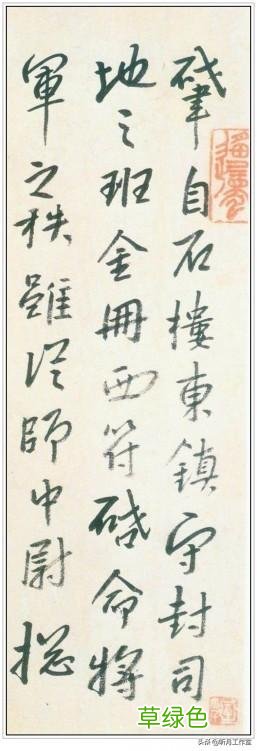 肇自石樓東鎮守封司
地之班金冊西符啓命將
軍之秩雖從師中尉揔
草绿色
头条@昕月工作室